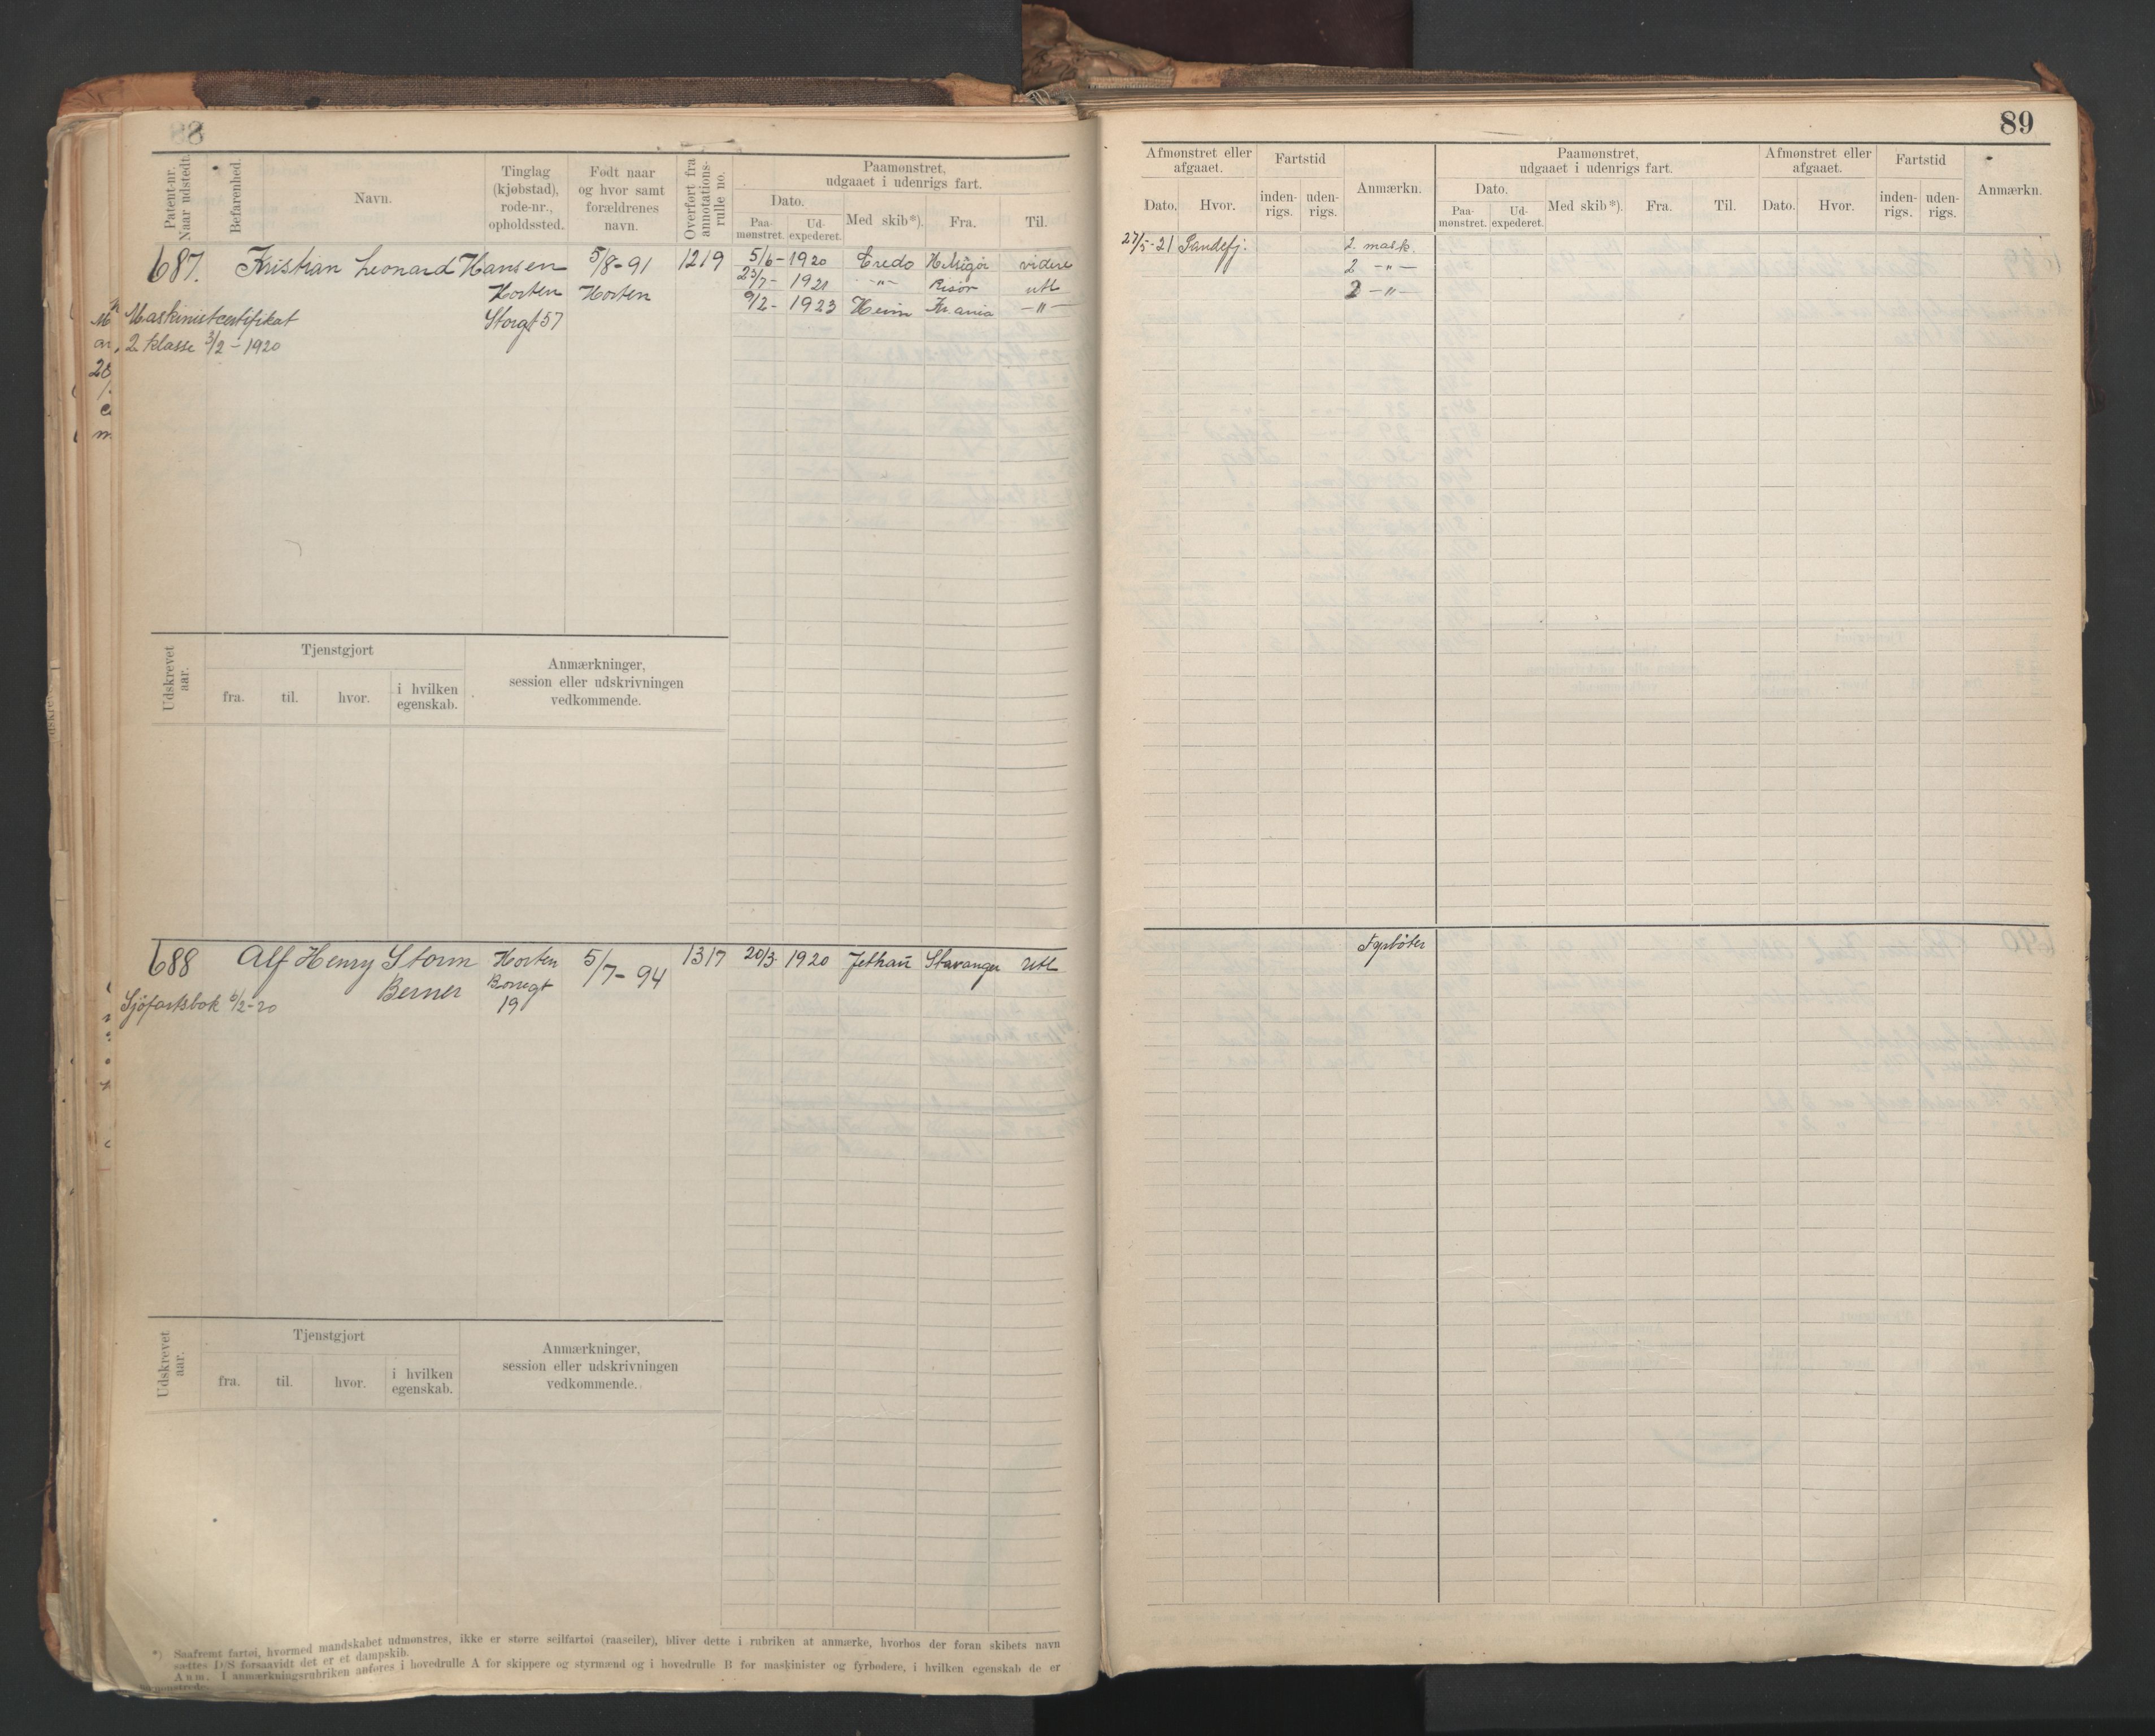 89
Patent-nr. Naar udstedt.
Befarenhed.
Navn.
Tinglag (kjøbstad), rode-nr., opholdssted.
Født naar og hvor samt forældrenes navn.
Overført fra annotations-rulle no.
Paamønstret, udgaaet i udenrigs fart.
Dato.
Paa-mønstret.
Ud-expederet.
Med skib*).
Fra.
Til.
Afmønstret eller afgaaet.
Dato.
Hvor.
Fartstid
inden-rigs.
uden-rigs.
Anmærkn.
Paamønstret, udgaaet i udenrigs fart.
Dato.
Paa-mønstret.
Ud-expederet.
Med skib*).
Fra.
Til.
Afmønstret eller afgaaet.
Dato.
Hvor.
Fartstid
inden-rigs.
uden-rigs.
Anmærkn.
687. Kristian Leonard Hansen 5/8-91 1219 5/6-1920 Credo videre 27/5-21 Sandefj. 2. mask.
Horten Horten 23/7-1921 -"- Risør utl 2 -"-
9/2-1923 Heim Kr.ania -"- 2 -"-
Maskinistcertifikat Storgt 57
2 klasse 3/2-1920
Udskrevet aar.
Tjenstgjort
fra.
til.
hvor.
i hvilken egenskab.
Anmærkninger,
session eller udskrivningen
vedkommende.
688 Alf Henry Storm Horten 5/7-94 1317 20/3 1920 Stavanger Utl Fyrbøter
Berner Borregt
Sjøfartsbok 6/2-20 19
Udskrevet aar.
Tjenstgjort
fra.
til.
hvor.
i hvilken egenskab.
Anmærkninger,
session eller udskrivningen
vedkommende.
*) Saafremt fartøi, hvormed mandskabet udmønstres, ikke er større seilfartøi (raaseiler), bliver dette i rubriken at anmærke, hvorhos der foran skibets navn
sættes D/S forsaavidt det er et dampskib.
Anm. I anmærkningsrubriken anføres i hovedrulle A for skippere og styrmænd og i hovedrulle B for maskinister og fyrbødere, i hvilken egenskab de er